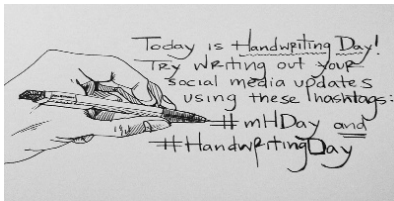 Today is Handwriting Day!
Try writing out your
social media updates
using these hashtags:
#mHDay and
#HandwritingDay